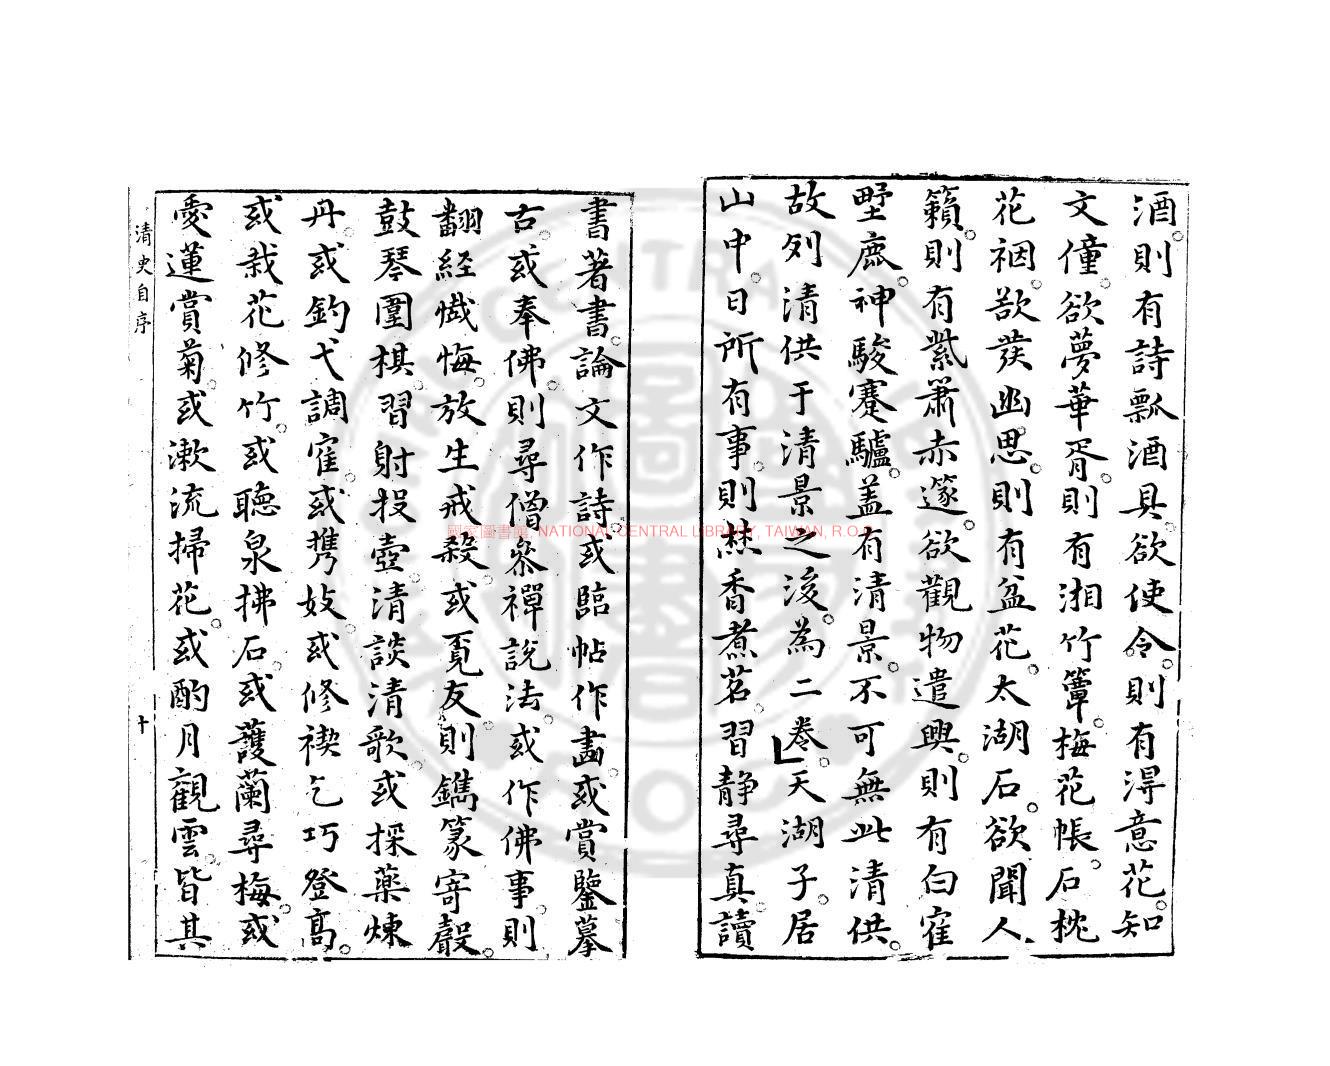 酒則有詩瓢酒具欲使令則有淂意花知
文僮欲夢華胥則有湘竹簟梅花帳石枕
花裀欲發幽思則有盆花太湖石欲聞人
籟則有紫簫赤篴欲觀物遣興則有白寉
野鹿神駿蹇驢盖有清景不可無此清供
故列清供于清景之後為二卷天湖子居
山中日所有事則焚香煮茗習静尋真讀
書著書論文作詩或臨帖作畫或賞鑒摹
古或奉佛則尋僧叅禪說法或作佛事則
翻經懴悔放生戒殺或覓友則鐫篆寄嚴
鼓琴圍棋習射投壺清談清歌或採藥煉
丹或釣弋調寉或携妓或修禊乞巧登髙
或栽花修竹或聽泉拂石或護蘭尋梅或
愛蓮賞菊或漱流掃花或酌月觀雲皆其
清史自序
十
國家圖書館, NATIONAL CENTRAL LIBRARY, TAIWAN, R.O.C